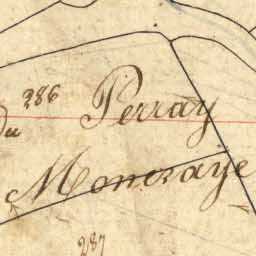 286 Perray
du
Moncraye
287